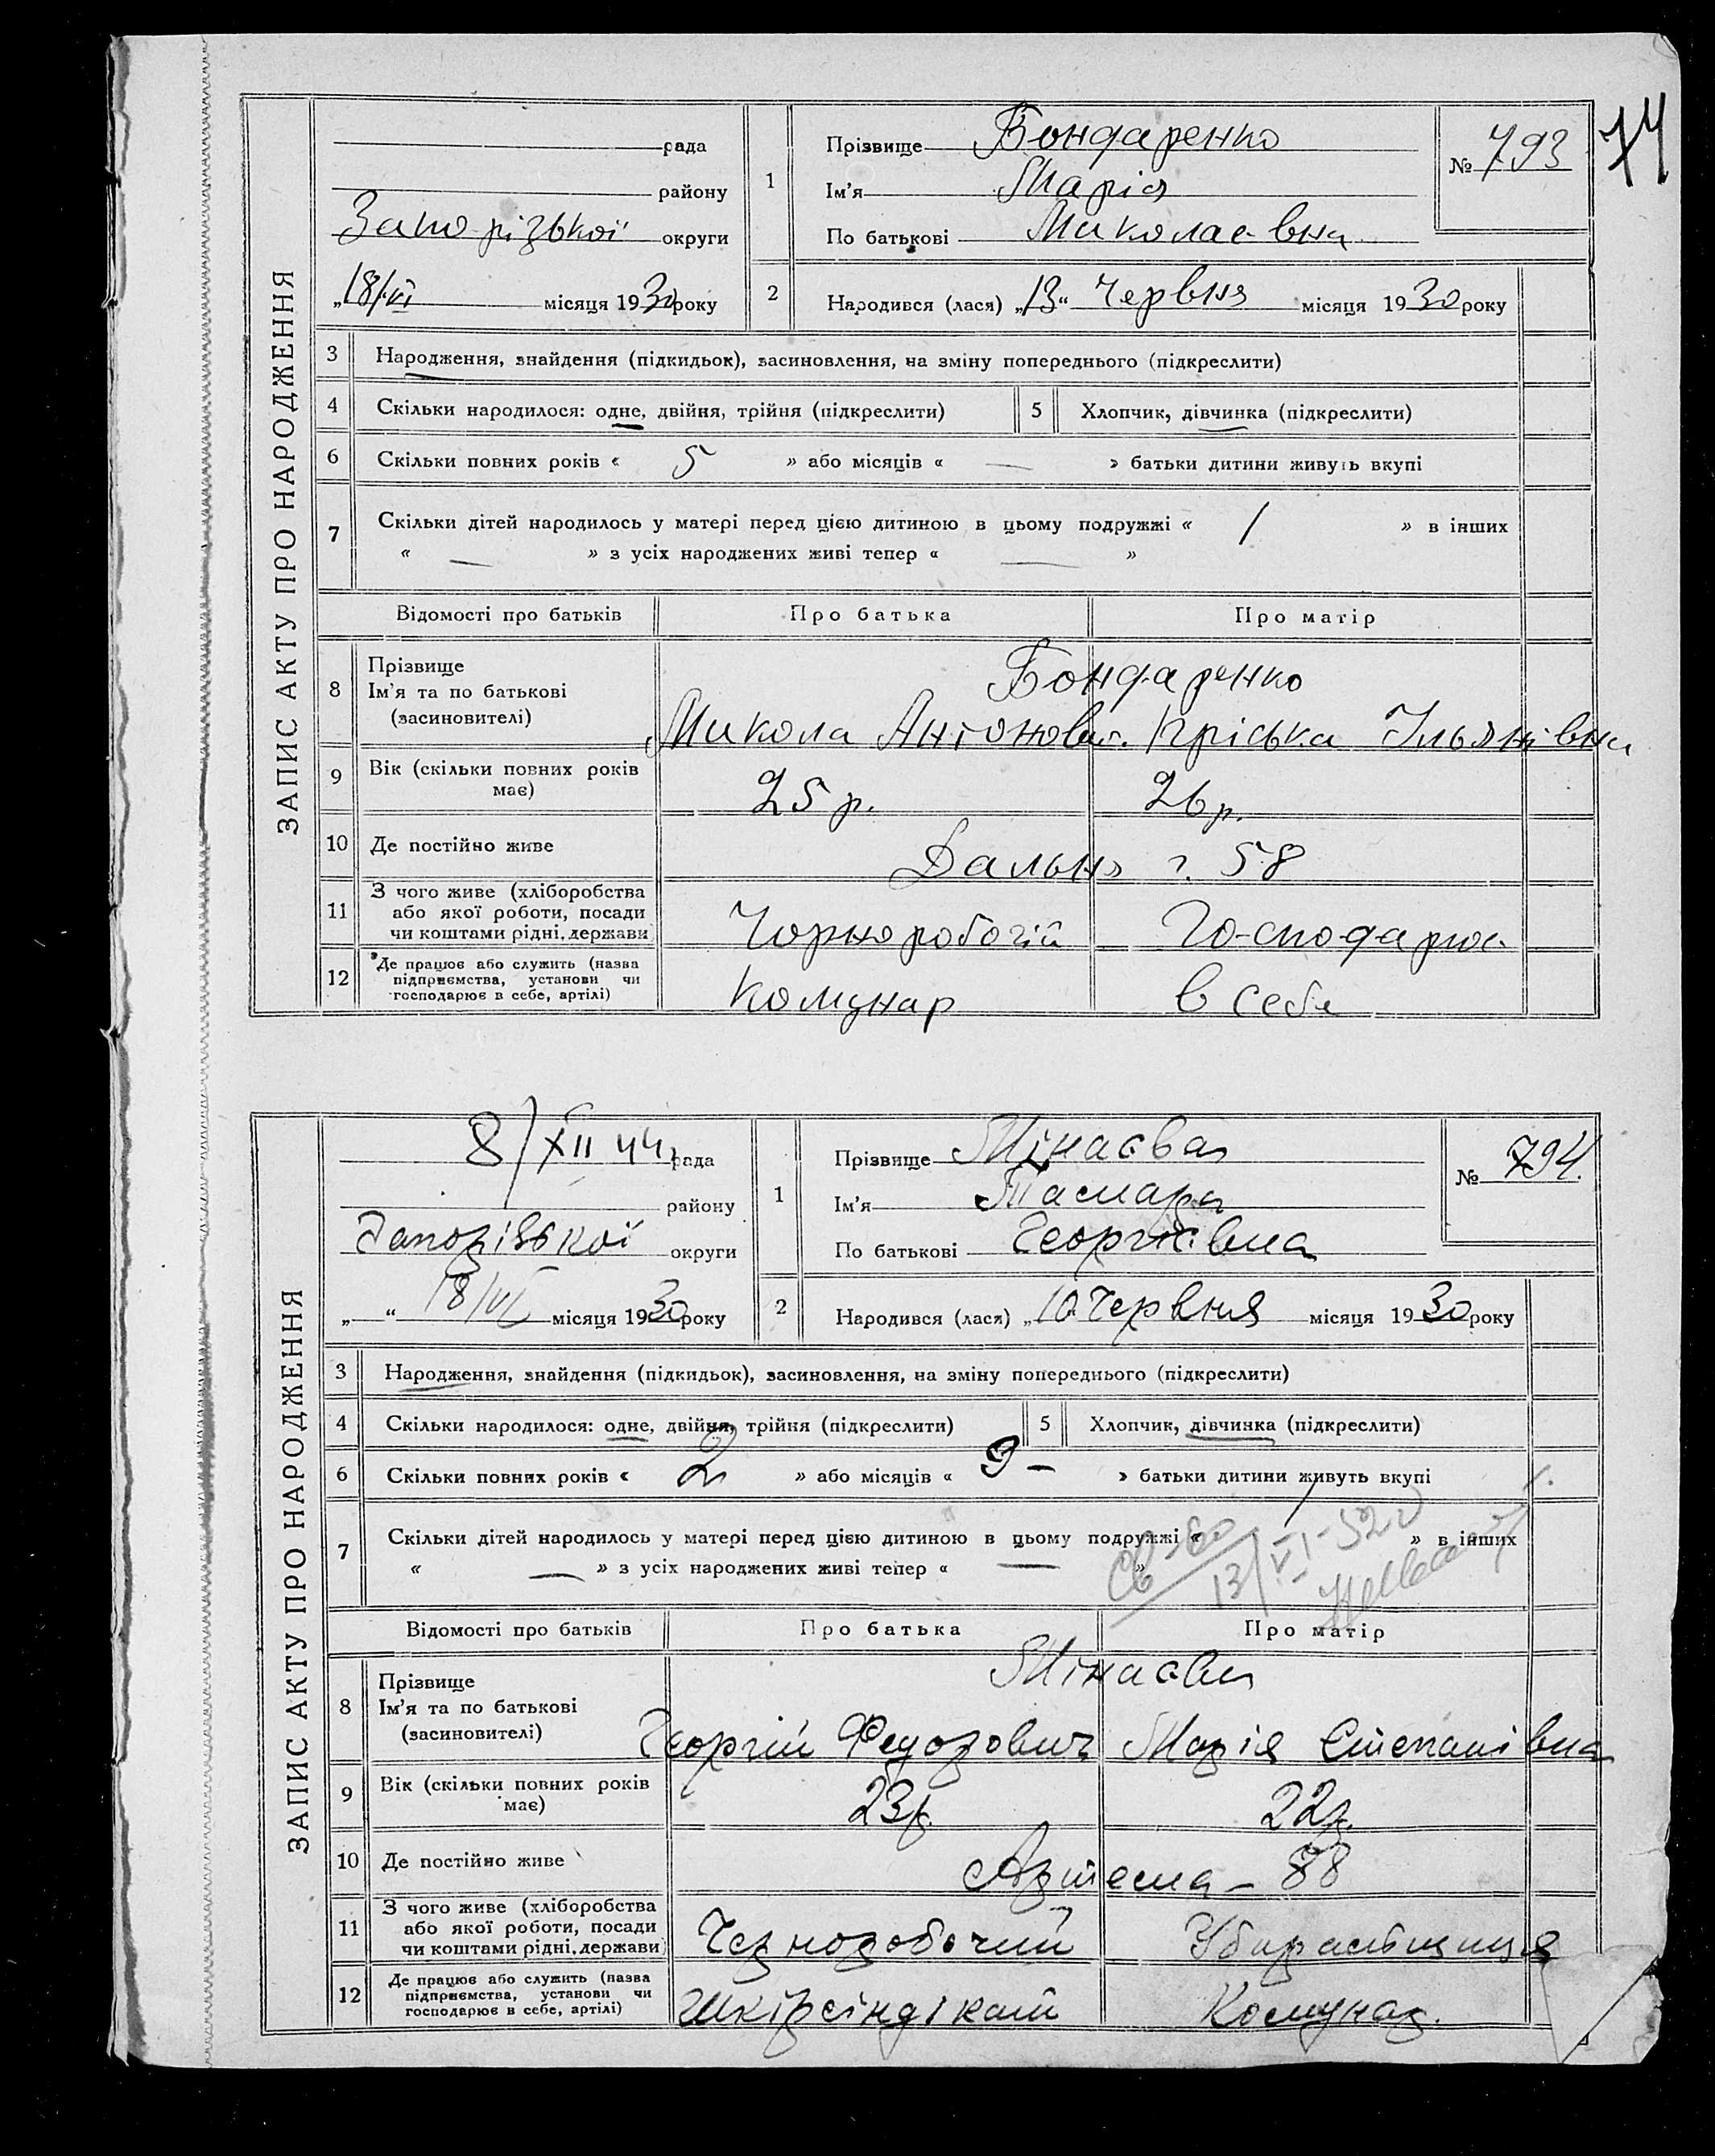 74
ЗАПИС АКТУ ПРО НАРОДЖЕННЯ
рада
району
Запорізької округи
„18/VI місяця 1930 року
1
Прізвище Бондаренко
Ім'я Марія
По батькові Миколаєвна
№ 793
2
Народився (лася) „13“ Червня місяця 1930 року
3 Народження, знайдення (підкидьок), засиновлення, на зміну попереднього (підкреслити)
4 Скільки народилося: одне, двійня, трійня (підкреслити) 5 Хлопчик, дівчинка (підкреслити)
6 Скільки повних років « 5 » або місяців « — » батьки дитини живуть вкупі
7 Скільки дітей народилось у матері перед цією дитиною в цьому подружжі « 1 » в інших
« — » з усіх народжених живі тепер « — »
Відомості про батьків Про батька Про матір
8 Прізвище
Ім'я та по батькові
(засиновителі)
Бондаренко
Микола Антонович. Пріська Ільянівна
9 Вік (скільки повних років має) 25 р. 26 р.
10 Де постійно живе Дальня г. 58
11 З чого живе (хліборобства
або якої роботи, посади
чи коштами рідні, держави
Чорноробочій Господарює
12 Де працює або служить (назва
підприємства, установи чи
господарює в себе, артілі)
Комунар в себе
ЗАПИС АКТУ ПРО НАРОДЖЕННЯ
8/XII 44, рада
району
Запорізької округи
„—“ 18/VI місяця 1930 року
1
Прізвище Мінаєва
Ім'я Тамара
По батькові Георгіївна
№ 794.
2
Народився (лася) „10 Червня місяця 1930 року
3 Народження, знайдення (підкидьок), засиновлення, на зміну попереднього (підкреслити)
4 Скільки народилося: одне, двійня, трійня (підкреслити) 5 Хлопчик, дівчинка (підкреслити)
6 Скільки повних років « 2 » або місяців « 9 — » батьки дитини живуть вкупі
7 Скільки дітей народилось у матері перед цією дитиною в цьому подружжі « » в інших
« — » з усіх народжених живі тепер « — »
13/VI-52
Відомості про батьків Про батька Про матір
8 Прізвище
Ім'я та по батькові
(засиновителі)
Мінаєви
Георгій Федорович Марія Степанівна
9 Вік (скільки повних років має) 23 р. 22 р.
10 Де постійно живе Артема — 88
11 З чого живе (хліборобства
або якої роботи, посади
чи коштами рідні, держави
Черноробочий Убиральщиця
12 Де працює або служить (назва
підприємства, установи чи
господарює в себе, артілі)
Шкірсіндікат Комунар.